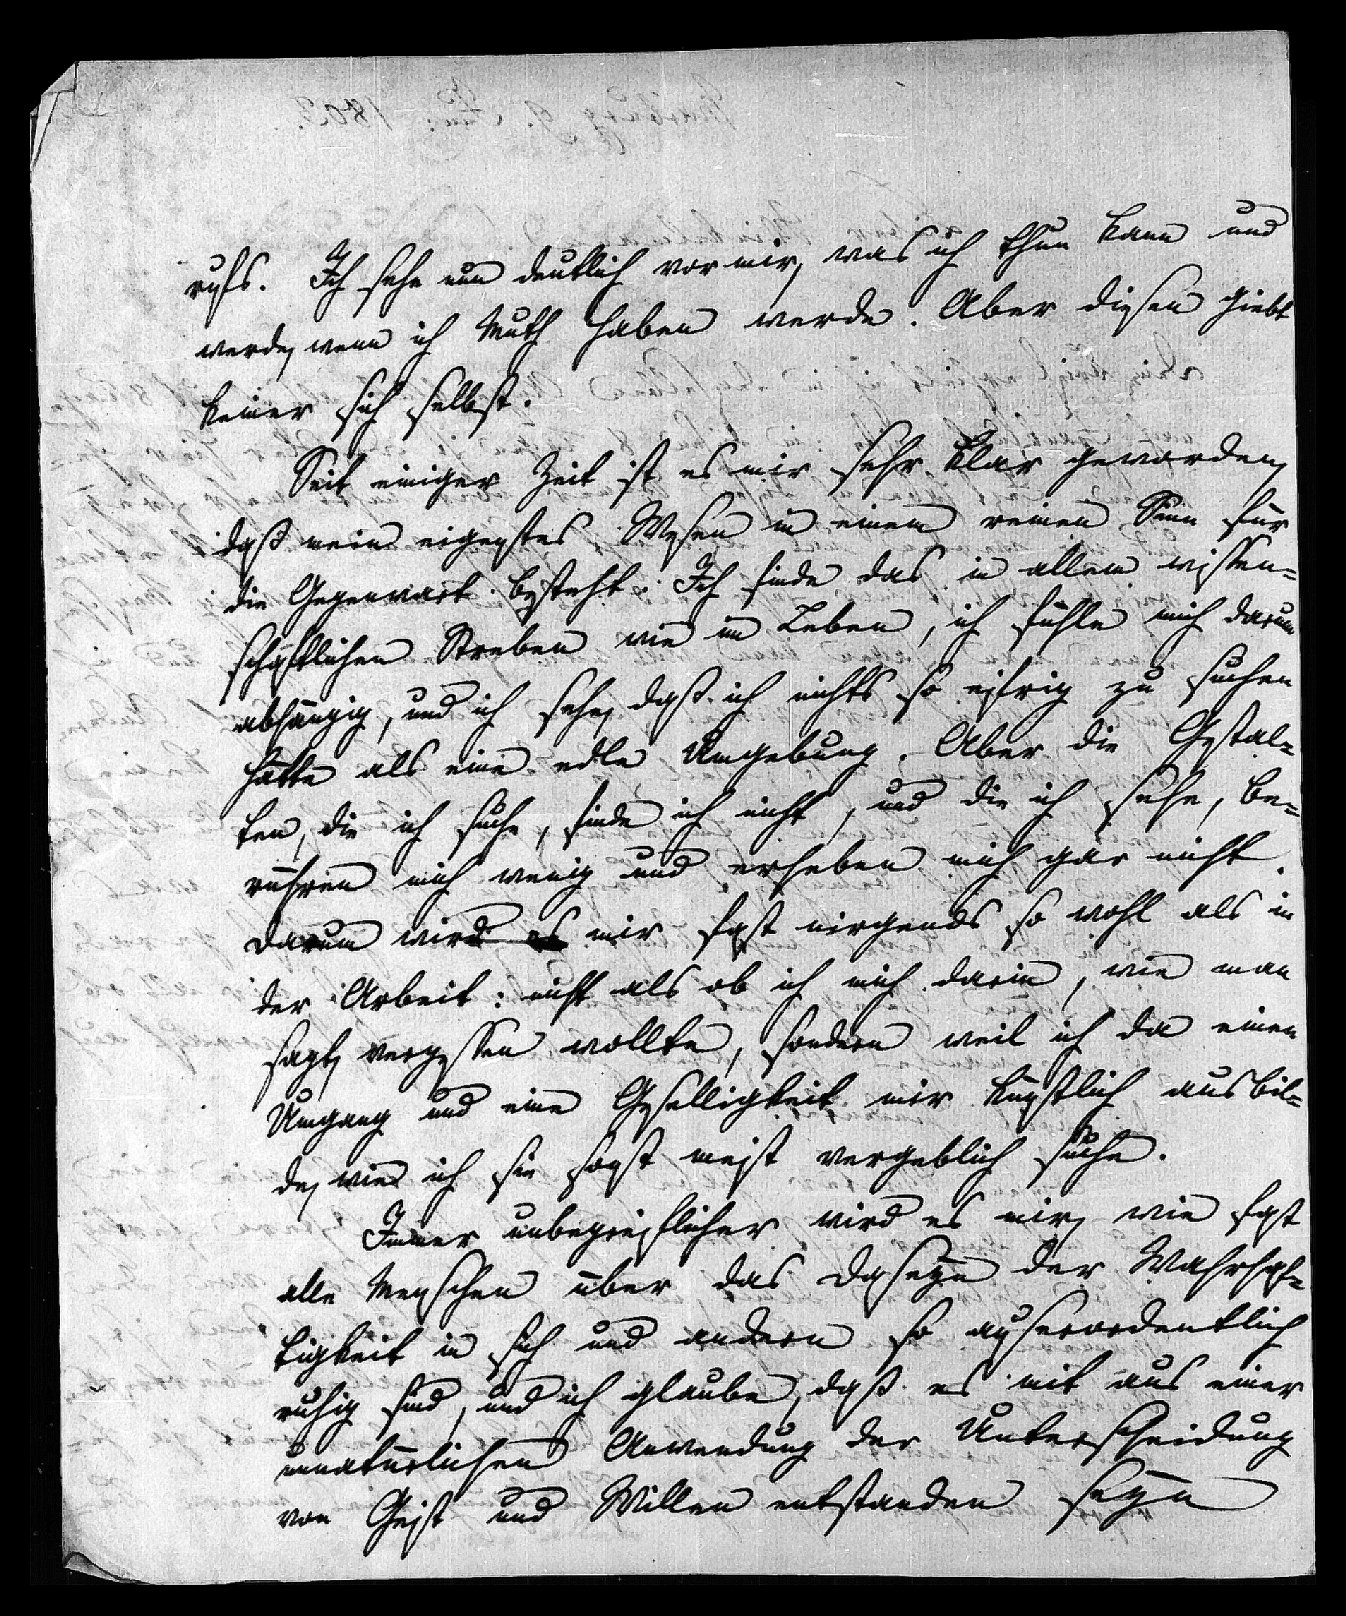 rufs. Ich sehe nun deutlich vor mir, was ich thun kann und
werde, wenn ich Muth haben werde. Aber diesen giebt
keiner sich selbst.
Seit einiger Zeit ist es mir sehr klar geworden,
daß mein eigenstes Wesen in einem reinen Sinn für
die Gegenwart besteht. Ich finde das in allem wissen=
schaftlichen Streben wie im Leben, ich fühle mich darum
abhängig, und ich sehe, daß ich nichts so eifrig zu suchen
hätte als eine edle Umgebung. Aber die Gestal=
ten, die ich suche, finde ich nicht, und die ich sehe, be=
rühren mich wenig und erheben mich gar nicht.
Darum wird es mir fast nirgends so wohl als in
der Arbeit: nicht als ob ich mich darin, wie man
sagt, vergessen wollte, sondern weil ich da einen
Umgang und eine Geselligkeit mir künstlich ausbil=
de, wie ich sie sonst meist vergeblich suche.
Immer unbegreiflicher wird es mir, wie fast
alle Menschen über das Daseyn der Wahrhaf=
tigkeit in sich und andern so ausserordentlich
ruhig sind, und ich glaube, daß es mit aus einer
unnatürlichen Anwendung der Unterscheidung
von Geist und Willen entstanden seyn